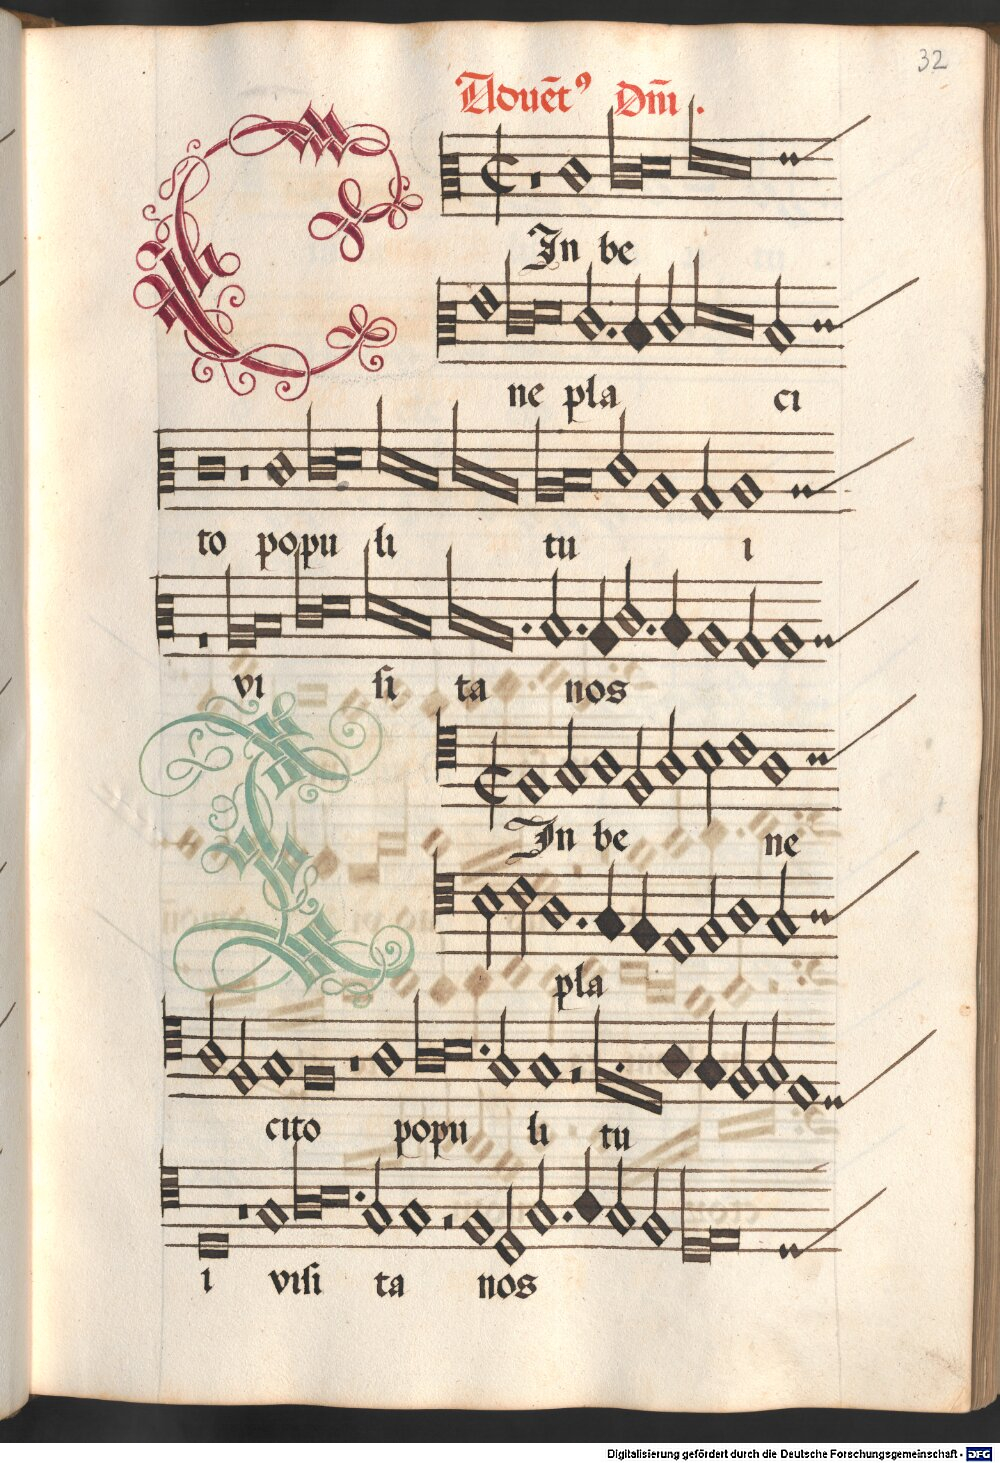 32
Aduēt⁹ Dm̄.
In be
ne pla ci
to popu li tu i
vi si ta nos
In be ne
pla
cito popu li tu
i visi ta nos
Digitalisierung gefördert durch die Deutsche Forschungsgemeinschaft - DFG